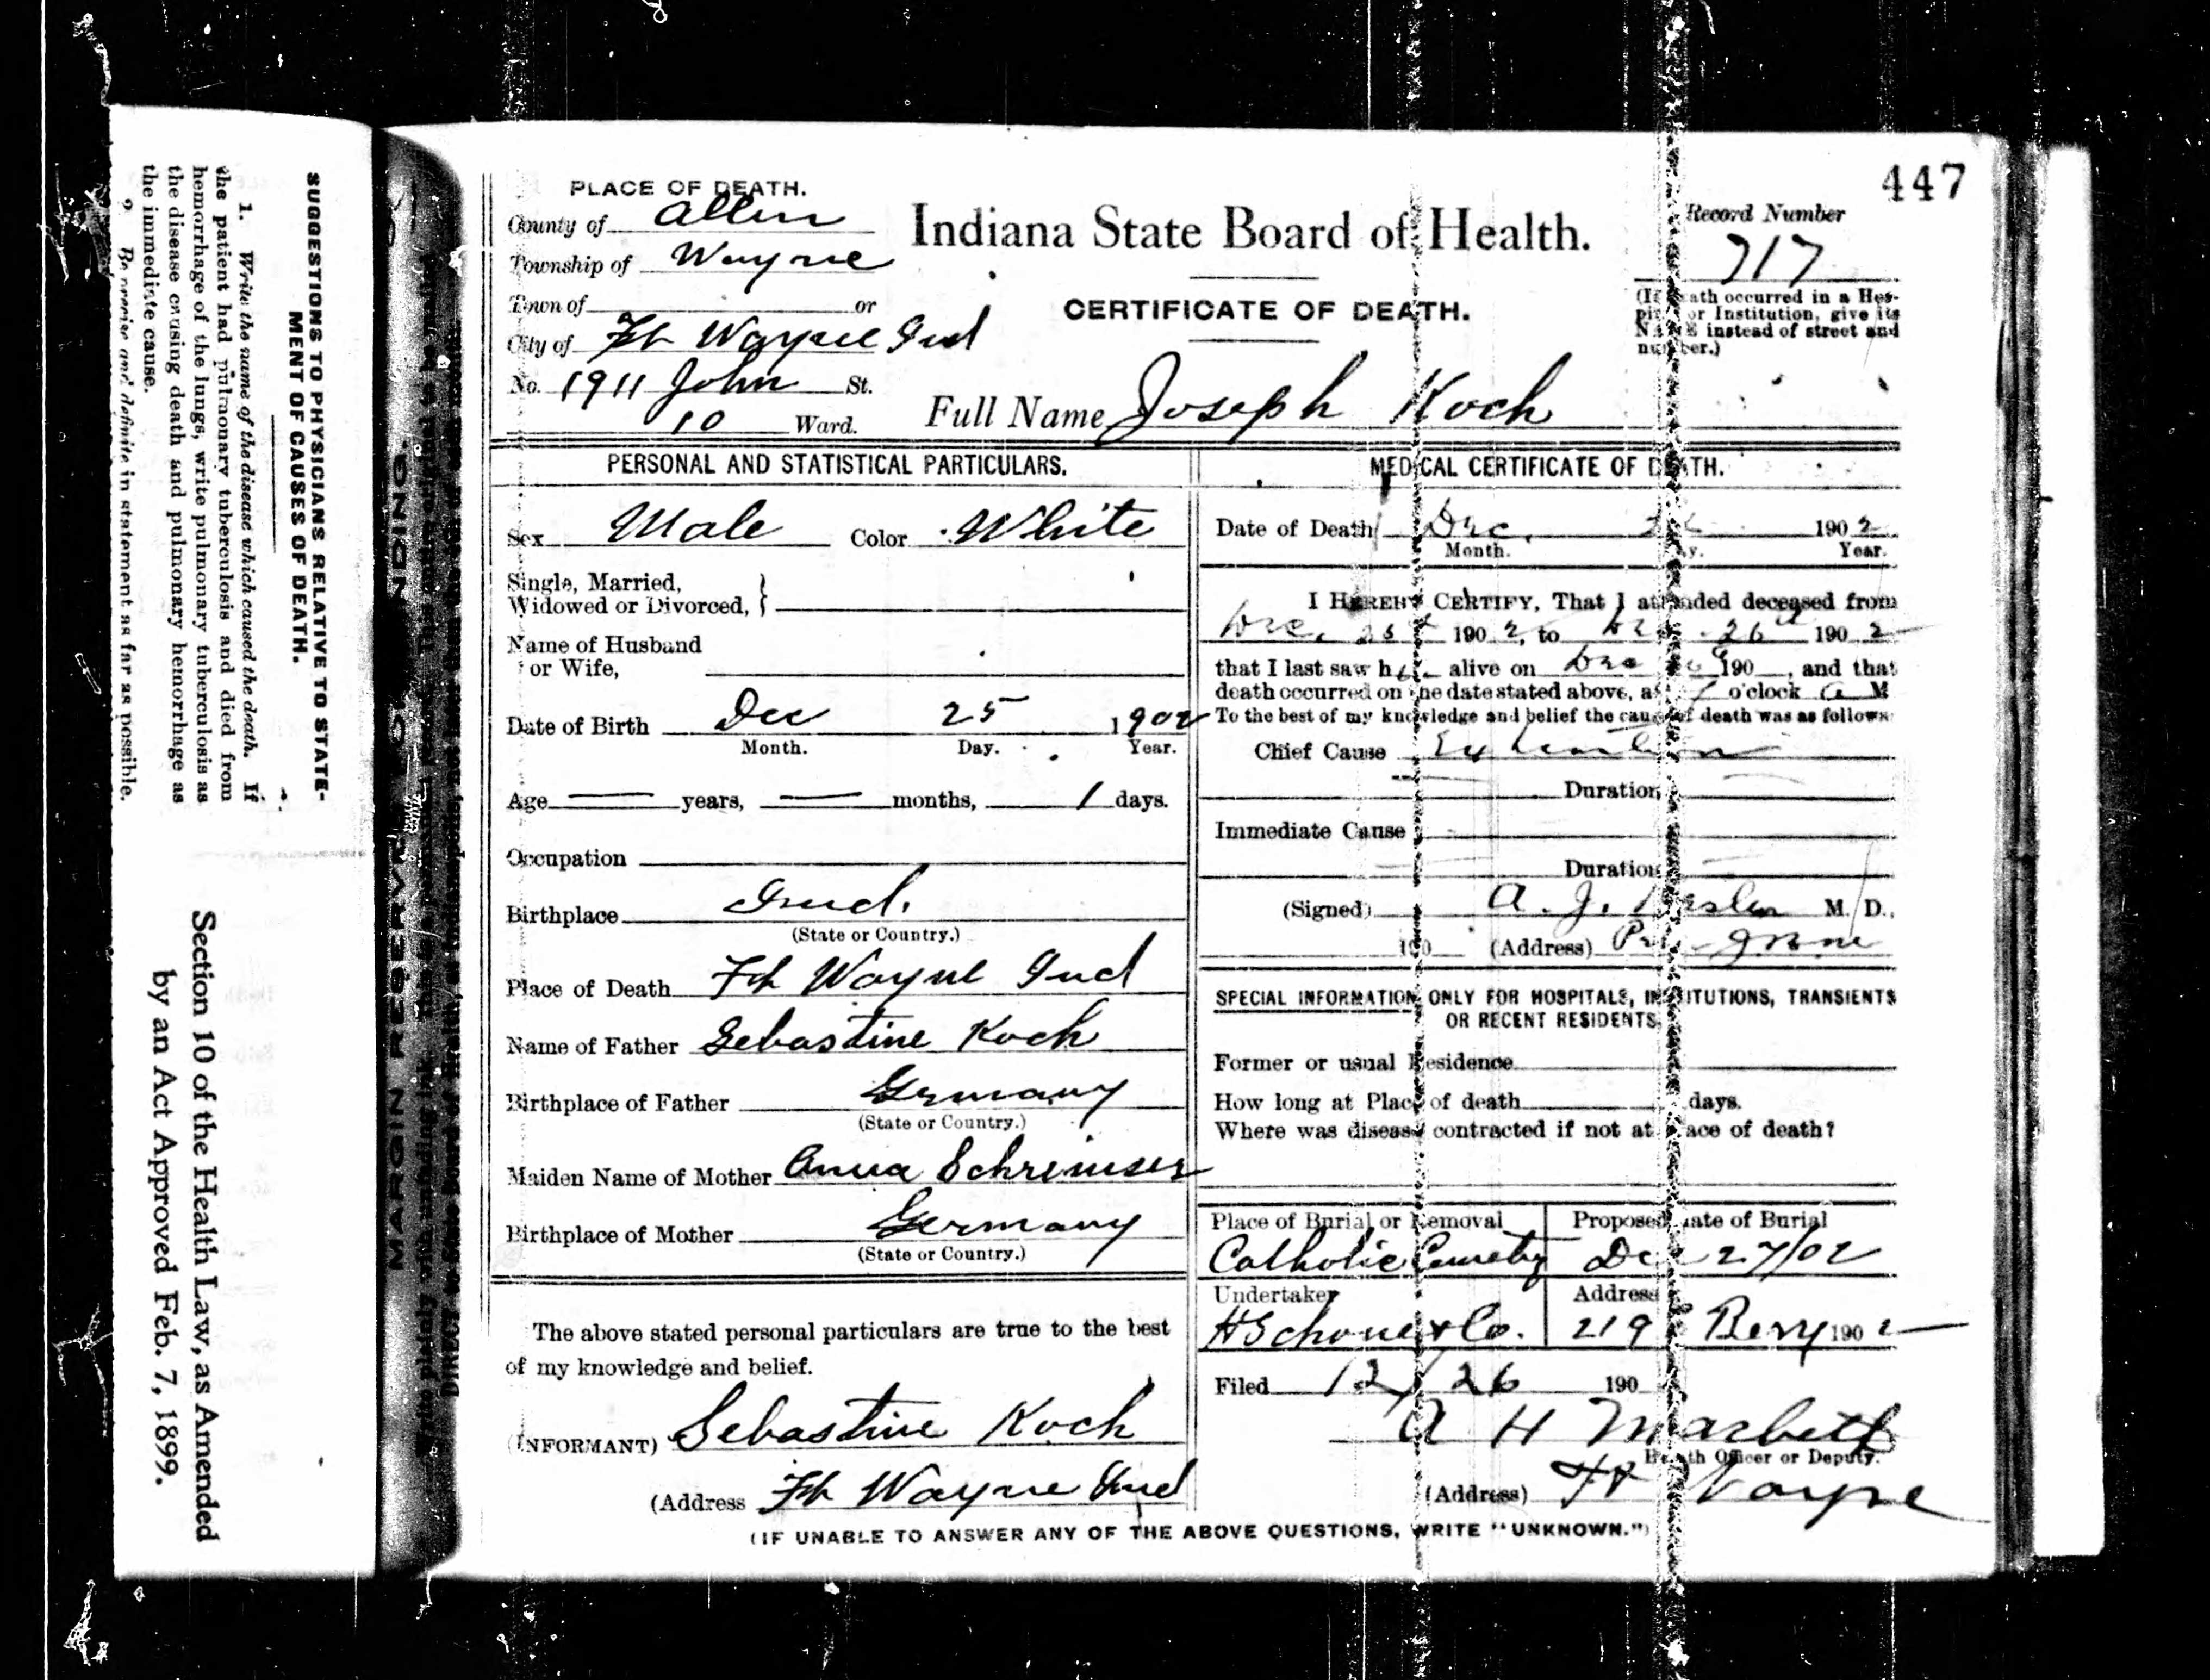 447
PLACE OF DEATH.
County of Allen
Township of Wayne
Town of or
City of Ft Wayne Ind
No. 1911 John St.
10 Ward.
Indiana State Board of Health.
CERTIFICATE OF DEATH.
Full Name Joseph Koch
Record Number
717
(If death occurred in a Hos-
pital or Institution, give its
NAME instead of street and
number.)
PERSONAL AND STATISTICAL PARTICULARS.
Sex Male Color White
Single, Married,
Widowed or Divorced,
Name of Husband
or Wife,
Date of Birth Dec 25 1902
Month. Day. Year.
Age years, months, 1 days.
Occupation
Birthplace Ind.
(State or Country.)
Place of Death Ft Wayne Ind
Name of Father Sebastine Koch
Birthplace of Father Germany
(State or Country.)
Maiden Name of Mother Anna
Birthplace of Mother Germany
(State or Country.)
The above stated personal particulars are true to the best
of my knowledge and belief.
(INFORMANT) Sebastine Koch
(Address Ft Wayne Ind
MEDICAL CERTIFICATE OF DEATH.
Date of Death Dec. 1902
Month. Day. Year.
I HEREBY CERTIFY, That I attended deceased from
Dec. 1902, to 26 1902
that I last saw h alive on Dec 190 , and that
death occurred on the date stated above, at o'clock a M
To the best of my knowledge and belief the cause of death was as follows:
Chief Cause
Duration
Immediate Cause
Duration
(Signed) A. J. M. D.,
190 (Address)
SPECIAL INFORMATION ONLY FOR HOSPITALS, INSTITUTIONS, TRANSIENTS
OR RECENT RESIDENTS.
Former or usual Residence
How long at Place of death days.
Where was disease contracted if not at place of death?
Place of Burial or Removal
Catholic Cemetery
Proposed date of Burial
Dec 27/02
Undertaker
H Schone & Co.
Address
219 E Berry 1902
Filed 12/26 190
A H Macbeth
Health Officer or Deputy.
(Address) Ft Wayne
(IF UNABLE TO ANSWER ANY OF THE ABOVE QUESTIONS, WRITE "UNKNOWN.")
SUGGESTIONS TO PHYSICIANS RELATIVE TO STATE-
MENT OF CAUSES OF DEATH.
1. Write the name of the disease which caused the death. If
the patient had pulmonary tuberculosis and died from
hemorrhage of the lungs, write pulmonary tuberculosis as
the disease causing death and pulmonary hemorrhage as
the immediate cause.
2 Be precise and definite in statement as far as possible.
Section 10 of the Health Law, as Amended
by an Act Approved Feb. 7, 1899.
MARGIN RESERVED